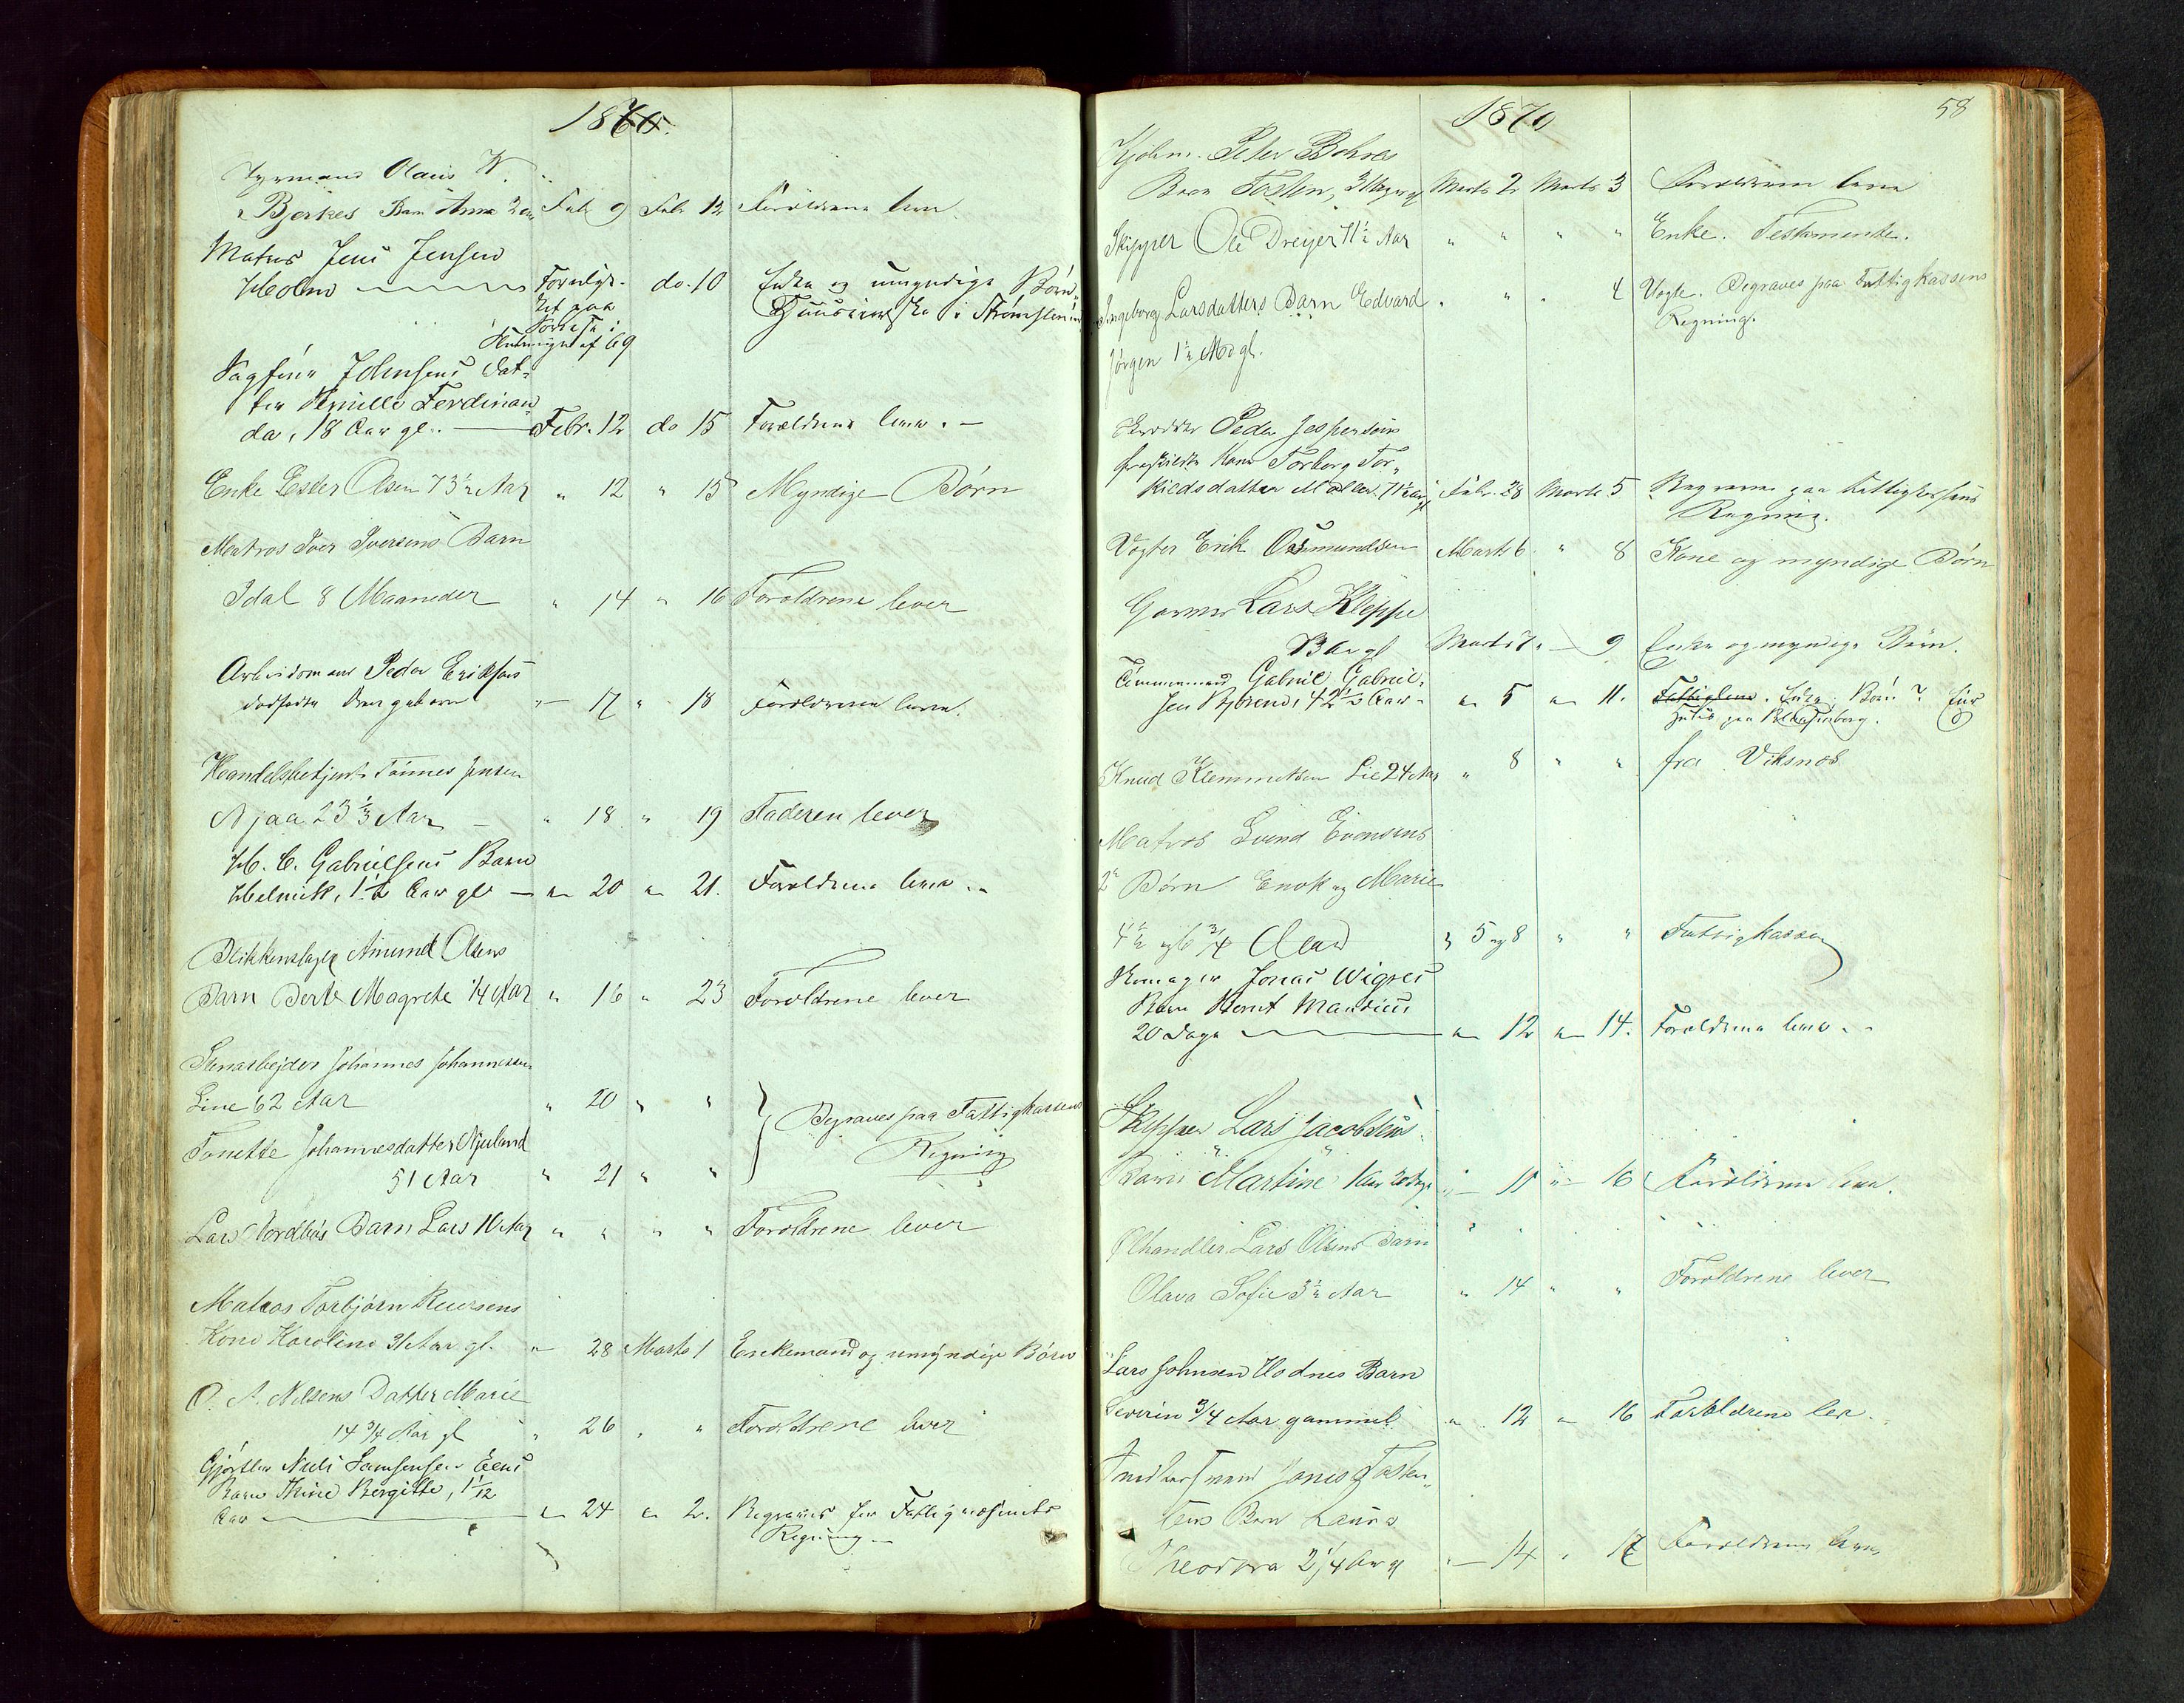 1870
Olaus W.
Bjerkes Barn Anna 2 Aar Febr 9 Febr 12 Forældrene lever
Matros Jens Jensen
Holm Forulyk- do. 10 Enke og umyndige Børn
ket paa
i
af 69
Johnsens Dat-
ter Pernille Ferdinan
da, 18 Aar gl. Febr. 12 do 15 Forældrene lever. —
Enke Ester Olsen 73½ Aar " 12 " 15 Myndige Børn
Matros Iver Iversens Barn
Idal 8 Maaneder " 14 " 16 Forældrene lever
Arbeidsmand Peder Eriksens
dødfødte Drengebarn " 17 " 18 Forældrene lever.
Handelsbetjent Tønnes Jensen
Njaa 23⅓ Aar " 18 " 19 Faderen lever
H. C. Gabrielsens Barn
Helmik, 1½ Aar gl — " 20 " 21. Forældrene lever. —
Blikkenslager Amund Olsens
Barn Berte Magrete 14 Aar " 16 " 23 Forældrene lever
Stenarbejder Johannes Johannessen
Line 62 Aar " 20 " "
Begraves paa Fattigkassens
Regning
Tonette Johannesdatter Njuland
51 Aar " 21 " "
Lars Nordbøs Barn Lars 10 Aar " " " " Forældrene lever
Matros Torbjørn Reiersens
Kone Karoline 31 Aar gl. " 28 Marts 1 Enkemand og umyndige Børn
O. A. Nilsens Datter Marie
14 ¾ Aar gl " 26 " " Forældrene lever
Gjørtler Niels Samsonsen Eens
Barn Thine Bergitte, 1 1/12
Aar " 24 " 2. Begraves for Fattigvæsenets
Regning —
1870 58
Peter Bohnes
Barn Torsten, 3 Uger gl Marts 2 Marts 3 Forældrene lever
Skipper Ole Dreyer 71½ Aar " " " " Enke. Testamente.
Ingeborg Larsdatters Barn Edvard " " " 4 Uægte. Begraves paa Fattigkassens
Regning.
Jørgen 1½ Md gl.
Peder Jespersens
fraskilte Kone Torborg Tor-
kildsdatter Møller 71½ Aar gl Febr. 28 Marts 5 Begraves paa Fattigkassens
Regning.
Vægter Erik Osmundsen Marts 6 " 8 Kone og myndige Børn
Garver Lars Kleppe
Marts 7 " 9 Enke og myndige Børn.
Tømmermand Gabriel Gabriel-
sen Bjørend, 42½ Aar " 5 " 11. Fattiglem. Enke. Børn?
Knud Klemmetsen Lie 24 Aar " 8 " " fra Viksnes
Matros Svend Evensens
2 Børn Enok og Marie
4½ og 6¾ Aar " 5 og 8 " " Fattigkassen
Jonas Wigres
Barn Bernt Mauritius
20 Dage " 12 " 14. Forældrene lever. —
Skipper Lars Jacobsens
Barn Martine 1 Aar 20 Dage " 11 " 16 Forældrene lever.
Ølhandler Lars Olsens Barn
Olava Sofie 3½ Aar " 14 " " Forældrene lever
Lars Johnsen Hodnes Barn
Severin ¾ Aar gammel " 12 " 16 Forældrene lev.
Jonas Tosten-
sens Barn Laura
Theodora 2¼ Aar gl " 14 " 17 Forældrene lever